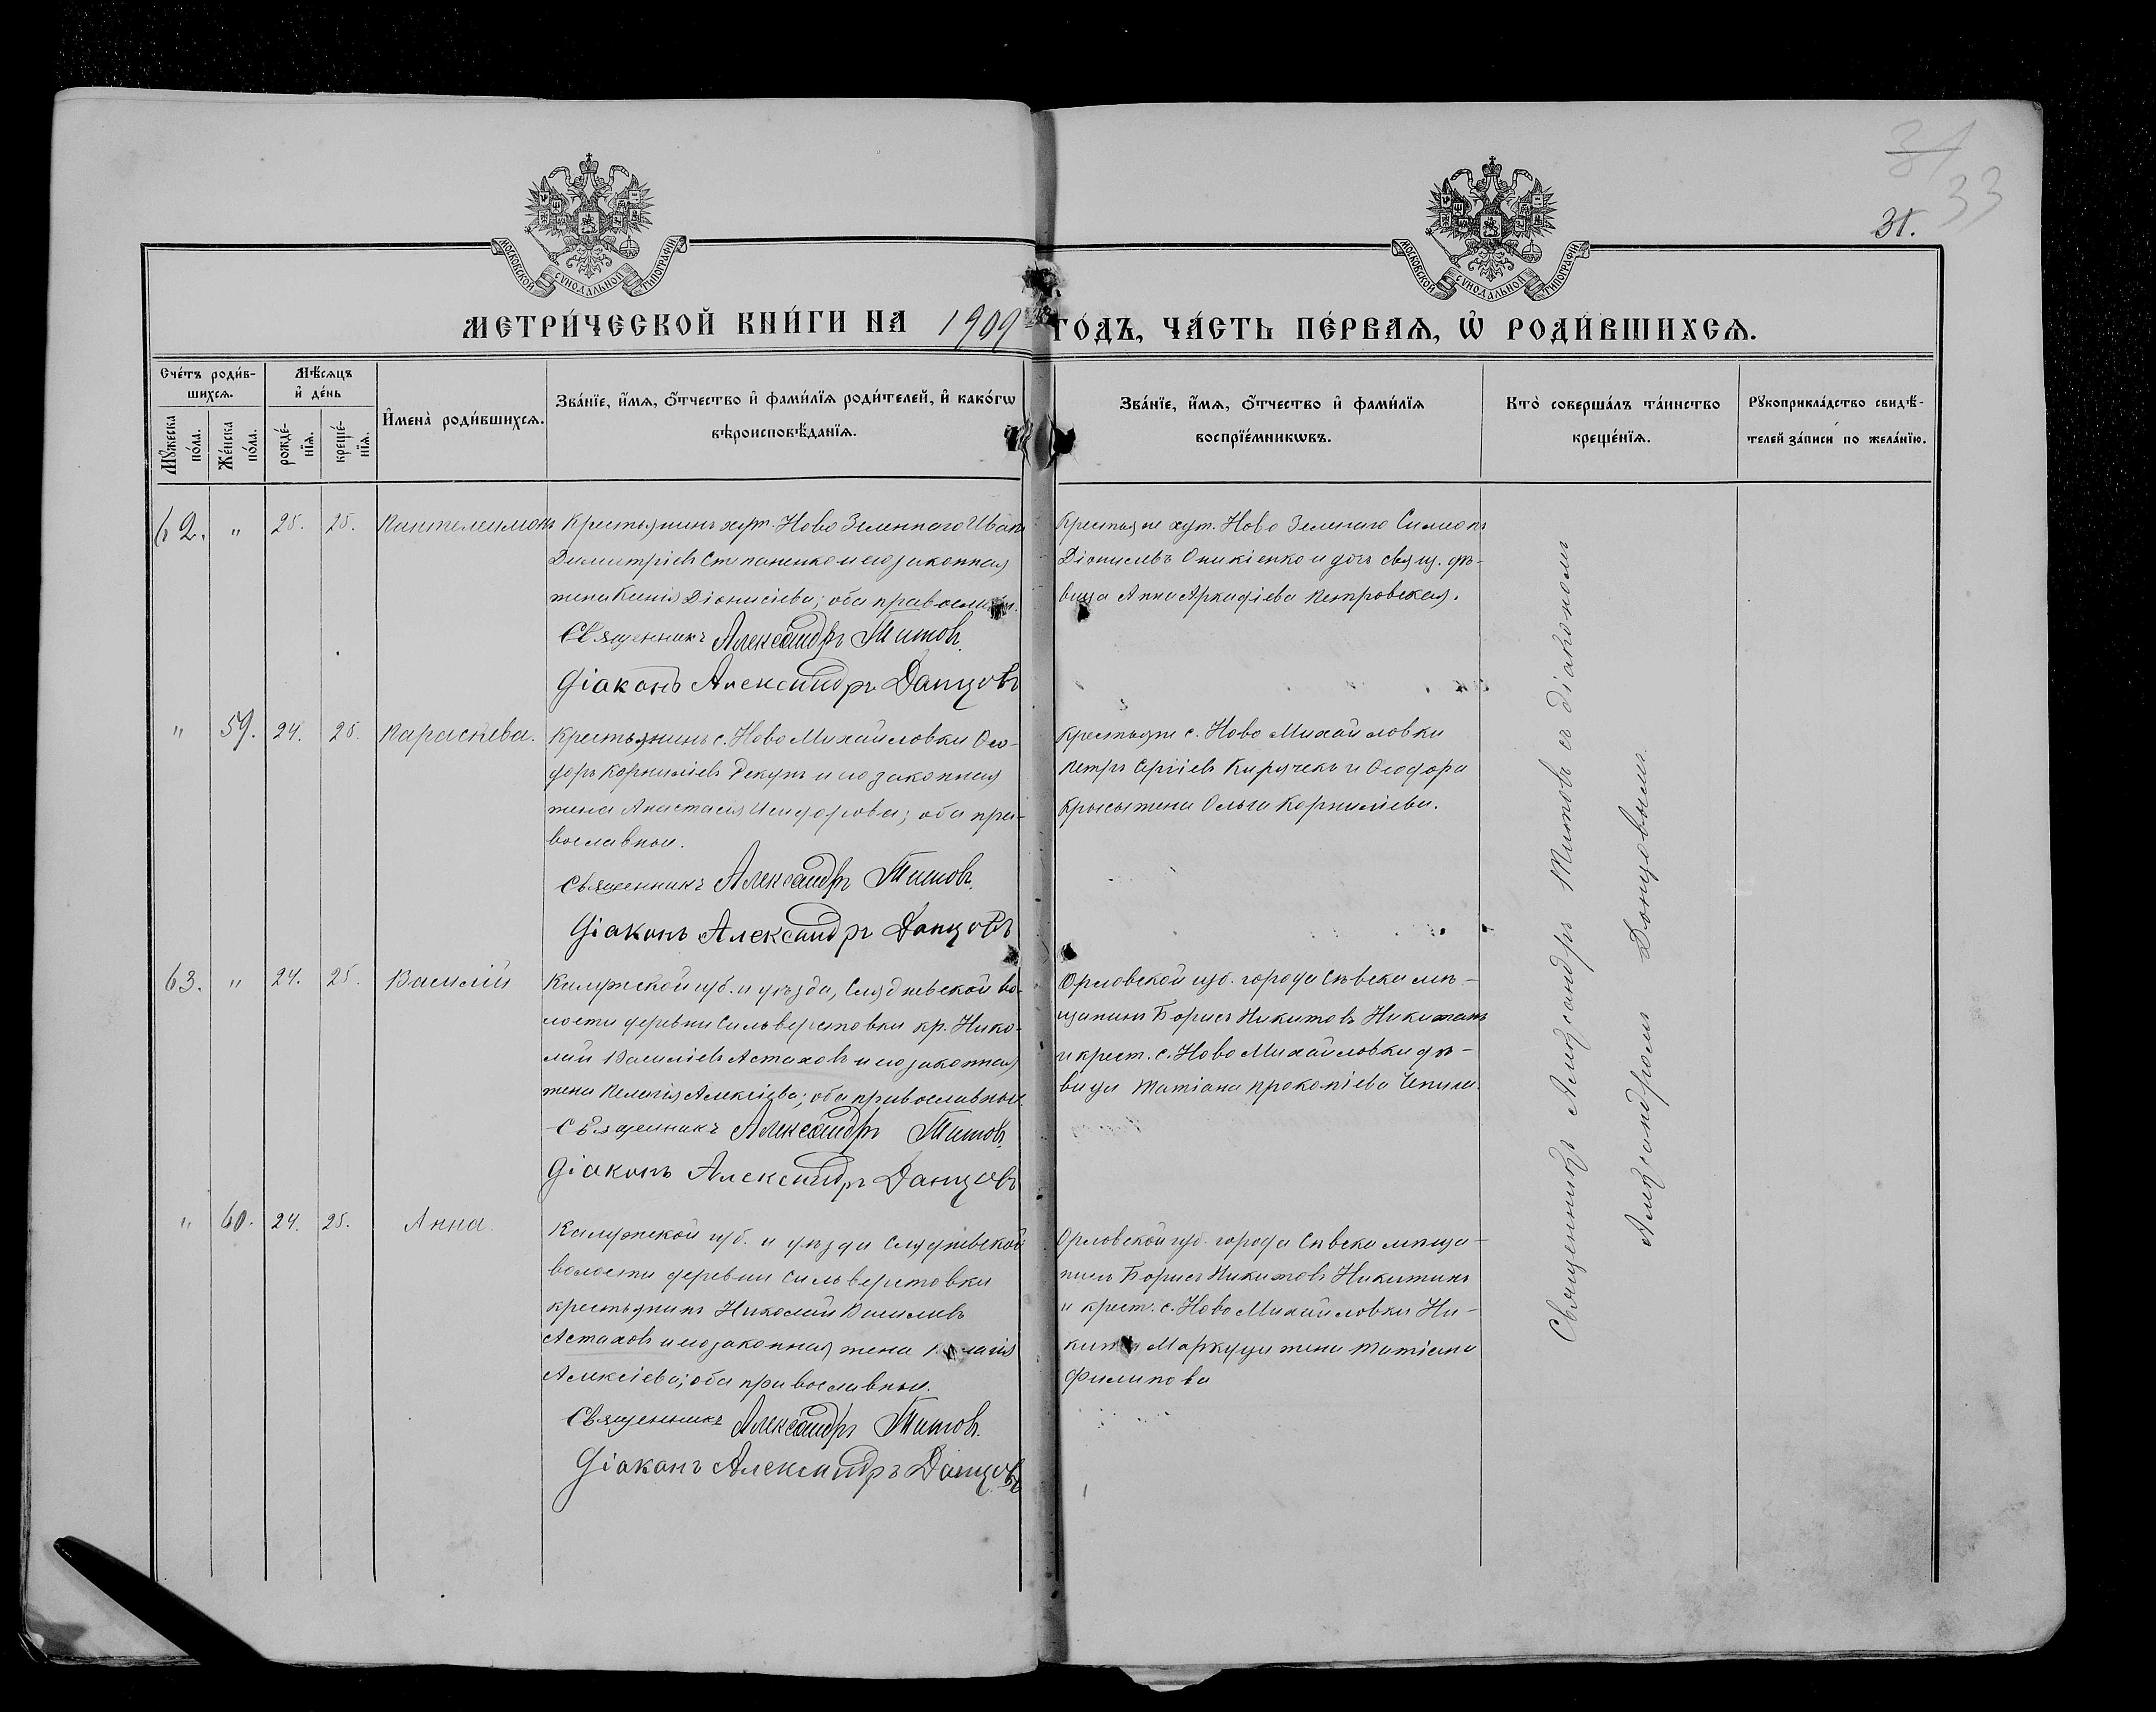 31
33
31.
МОСКОВСКОЙ СѴНОДАЛЬНОЙ ТИПОГРАФІИ
МОСКОВСКОЙ СѴНОДАЛЬНОЙ ТИПОГРАФІИ
МЕТРИ́ЧЕСКОЙ КНИ́ГИ НА 1909 ГО́ДЪ, ЧА́СТЬ ПЕ́РВАѦ, Ѡ҆ РОДИ́ВШИХСѦ.
Сче́тъ роди́в-
шихсѧ.
Мѣ́сѧцъ
и҆ де́нь
Мꙋ́жеска
по́ла.
Же́нска
по́ла.
рожде́-
нїѧ.
креще́-
нїѧ.
И҆мена̀ роди́вшихсѧ.
Зва́нїе, и҆́мѧ, ѻ҆́тчество и҆ фами́лїѧ роди́телей, и҆ како́гѡ
вѣроисповѣ́данїѧ.
Зва́нїе, и҆́мѧ, ѻ҆́тчество и҆ фами́лїѧ
воспрїе́мникѡвъ.
Кто̀ соверша́лъ та́инство
креще́нїѧ.
Рꙋкоприкла́дство свидѣ́-
телей за́писи по жела́нїю.
62. " 25. 25. Пантелеимонъ
Крестьянинъ хут. Ново Зеленнаго Иванъ
Димитріевъ Степаненко и его законная
жена Ксенія Діонисіева; оба православн.
Священникъ Александръ Титовъ.
Діаконъ Александръ Донцовъ
Крестьяне хут. Ново Зеленаго Симеонъ
Діонисіевъ Оникіенко и дочь свящ. дѣ-
вица Анна Аркадіева Петровская.
" 59. 24. 25. Параскева.
Крестьянинъ с. Ново Михайловки Ѳео-
доръ Корниліевъ и его законная
жена Анастасія Исидорова; оба пра-
вославные.
Священникъ Александръ Титовъ.
Діаконъ Александръ Донцовъ
Крестьяне с. Ново Михайловки
Петръ Сергіевъ Кирячекъ и Ѳеодора
жена Ольга Корниліева.
63. " 24. 25. Василій
Калужской губ. и уѣзда, Слядневской во-
лости деревни Сильверстовки кр. Нико-
лай Василіевъ Астаховъ и его законная
жена Пелагія Алексіева; оба православные.
Священникъ Александръ Титовъ.
Діаконъ Александръ Донцовъ
Орловской губ. города Сѣвска мѣ-
щанинъ Борисъ Никитовъ Никитинъ
и крест. с. Ново Михайловки дѣ-
вица Татіана Прокопіева
" 60. 24. 25. Анна.
Калужской губ. и уѣзда Слядневской
волости деревни Сильверстовки
крестьянинъ Николай Василіевъ
Астаховъ и его законная жена Пелагія
Алексіева; оба православные.
Священникъ Александръ Титовъ.
Діаконъ Александръ Донцовъ
Орловской губ. города Сѣвска мѣща-
нинъ Борисъ Никитовъ Никитинъ
и крест. с. Ново Михайловки Ни-
киты Маркуци жена Татіана
Филипова
Священникъ Александръ Титовъ съ діакономъ
Александромъ Донцовымъ